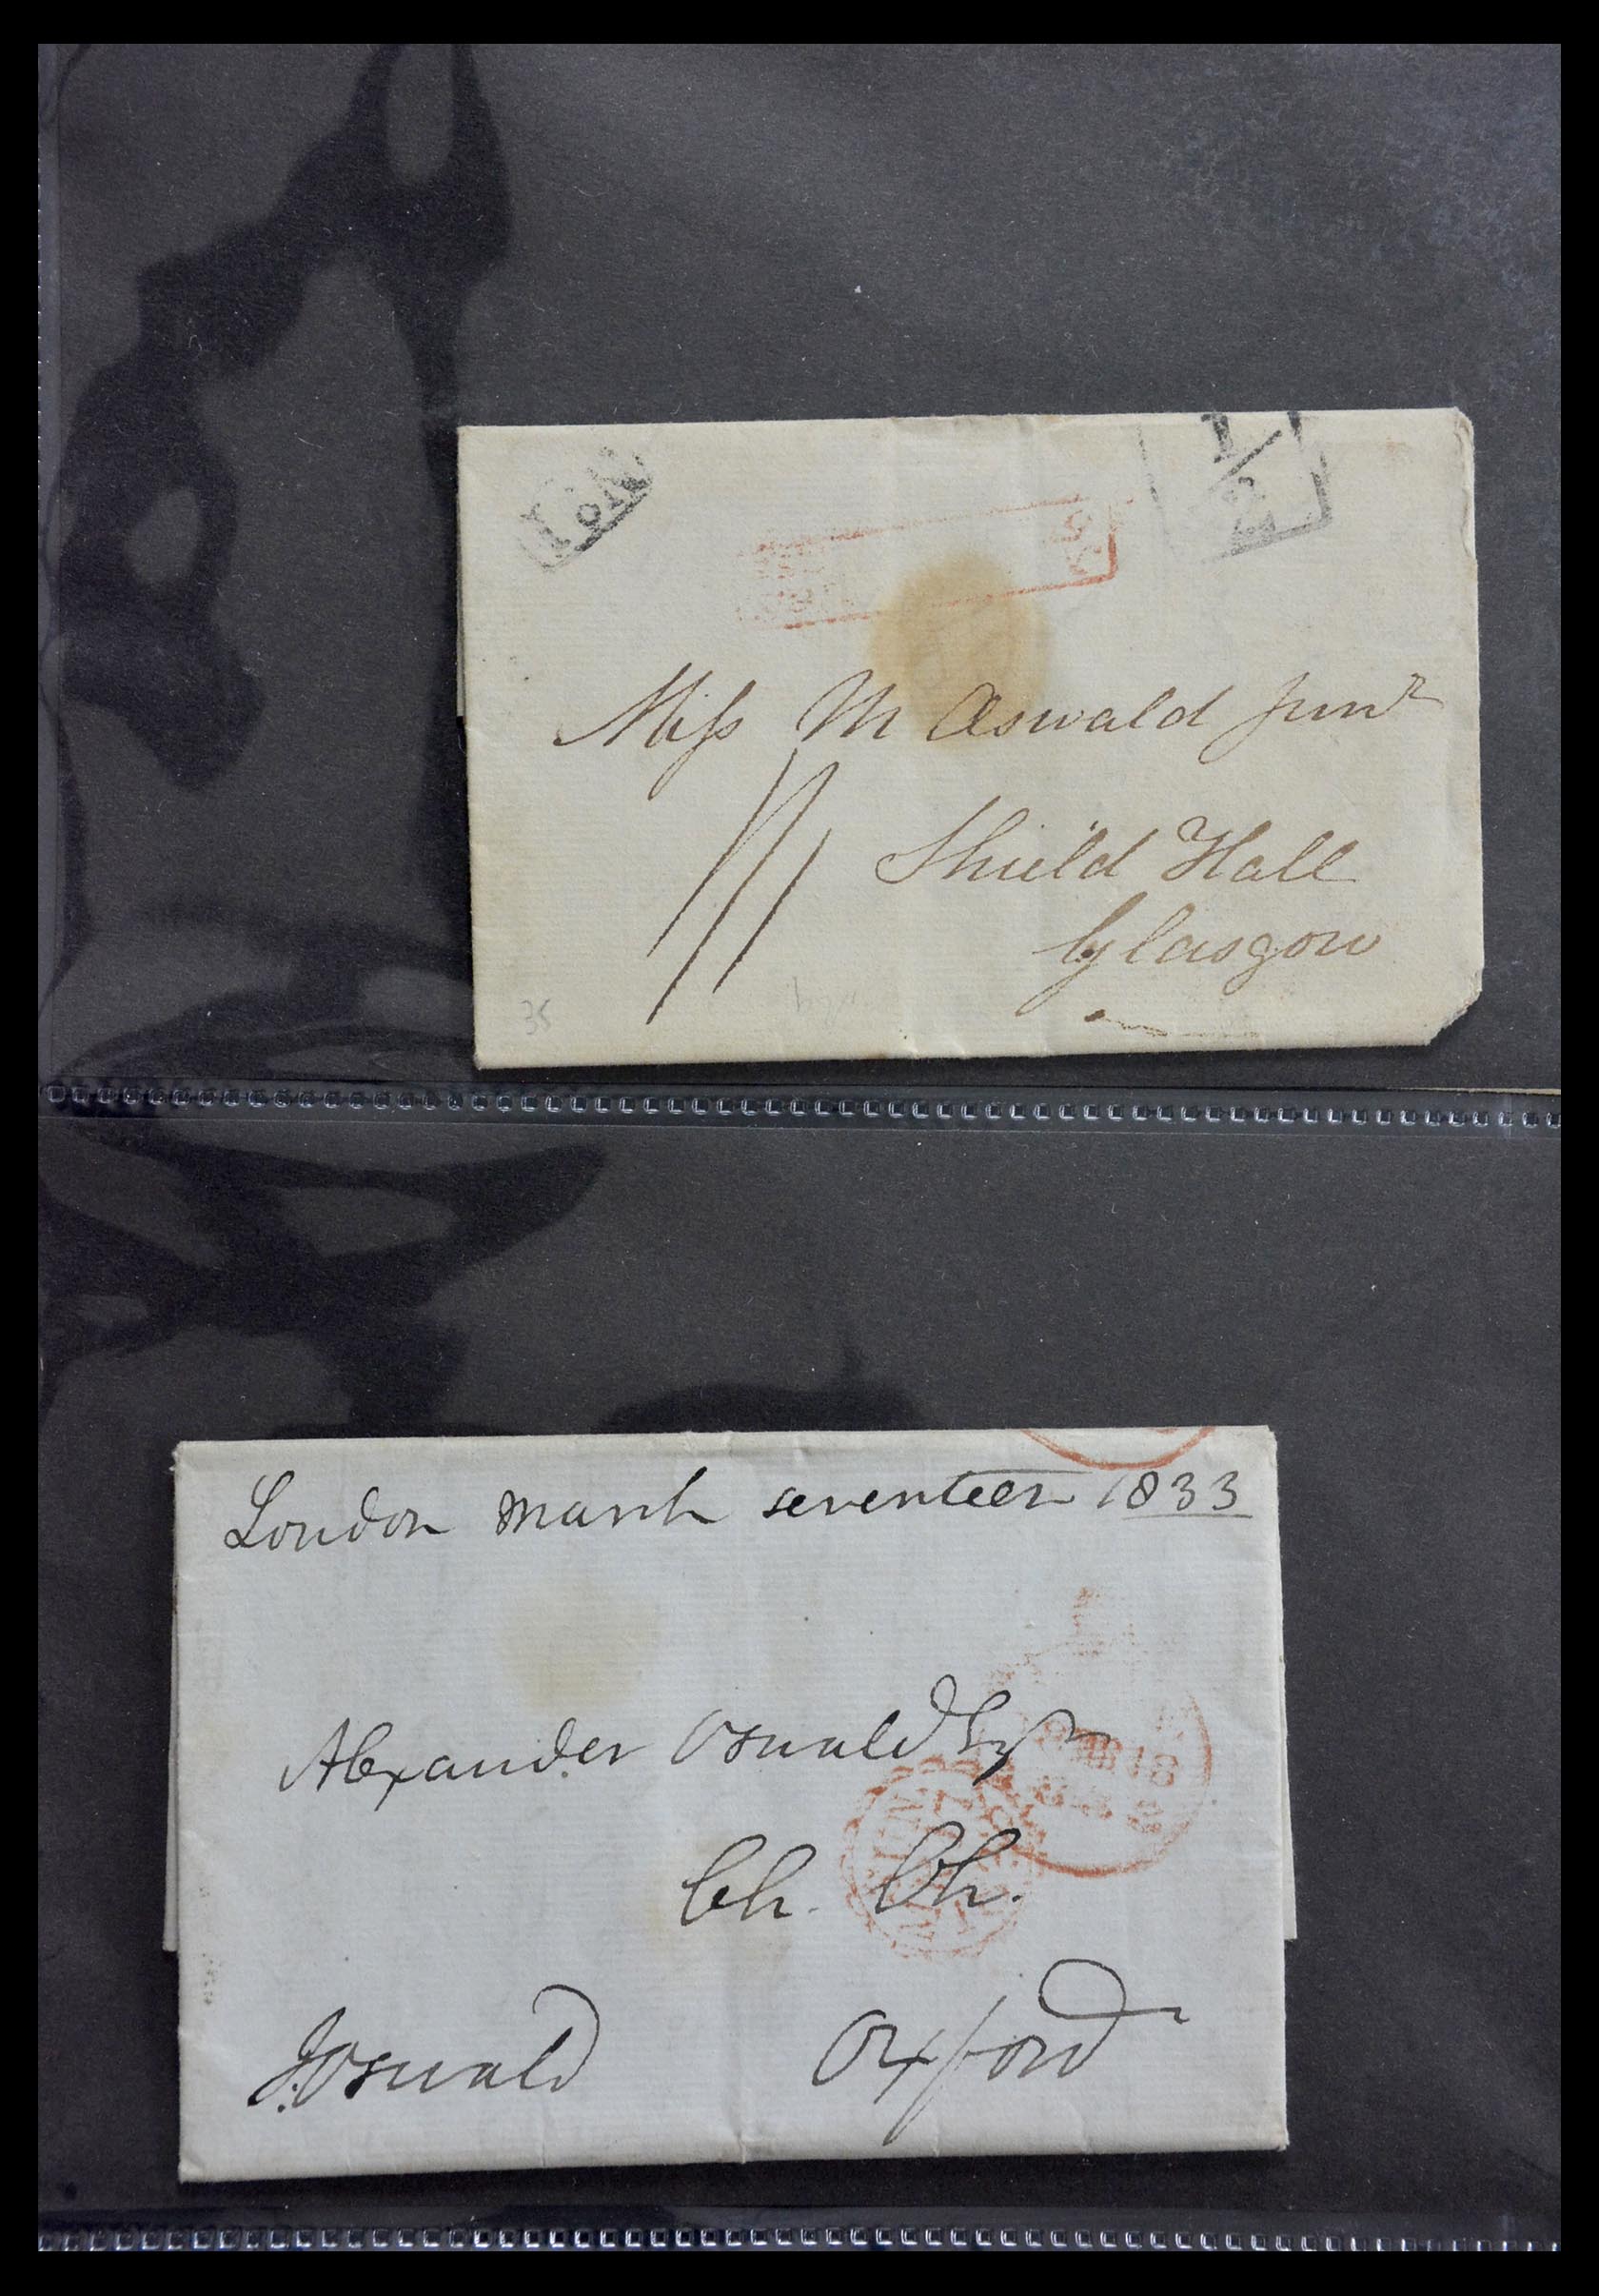 1/2
Miss M Oswald Junr
Shield Hall
Glasgow
35
London March seventeen 1833
Alexander Oswald Esqr
Ch. Ch.
J. Oswald
Oxford